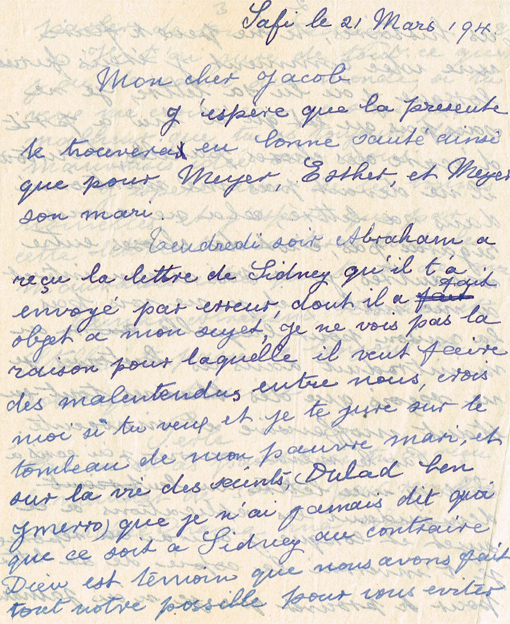 Safi le 21 Mars 194.
Mon cher Jacob
J'espère que la presente
te trouvera en bonne santé ainsi
que pour Meyer, Esther, et Meyer
son mari.
Vendredi soir Abraham a
reçu la lettre de Sidney qu'il t'a
envoyé par erreur, dont il a fait
objet a mon sujet, je ne vois pas la
raison pour laquelle il veut faire
des malentendus entre nous, crois
moi si tu veux et je te jure sur le
tombeau de mon pauvre mari, et
sur la vie des saints (Oulad ben
Zmerro) que je n'ai jamais dit quoi
que ce soit a Sidney au contraire
Dieu est témoin que nous avons fait
tout notre possible pour vous eviter